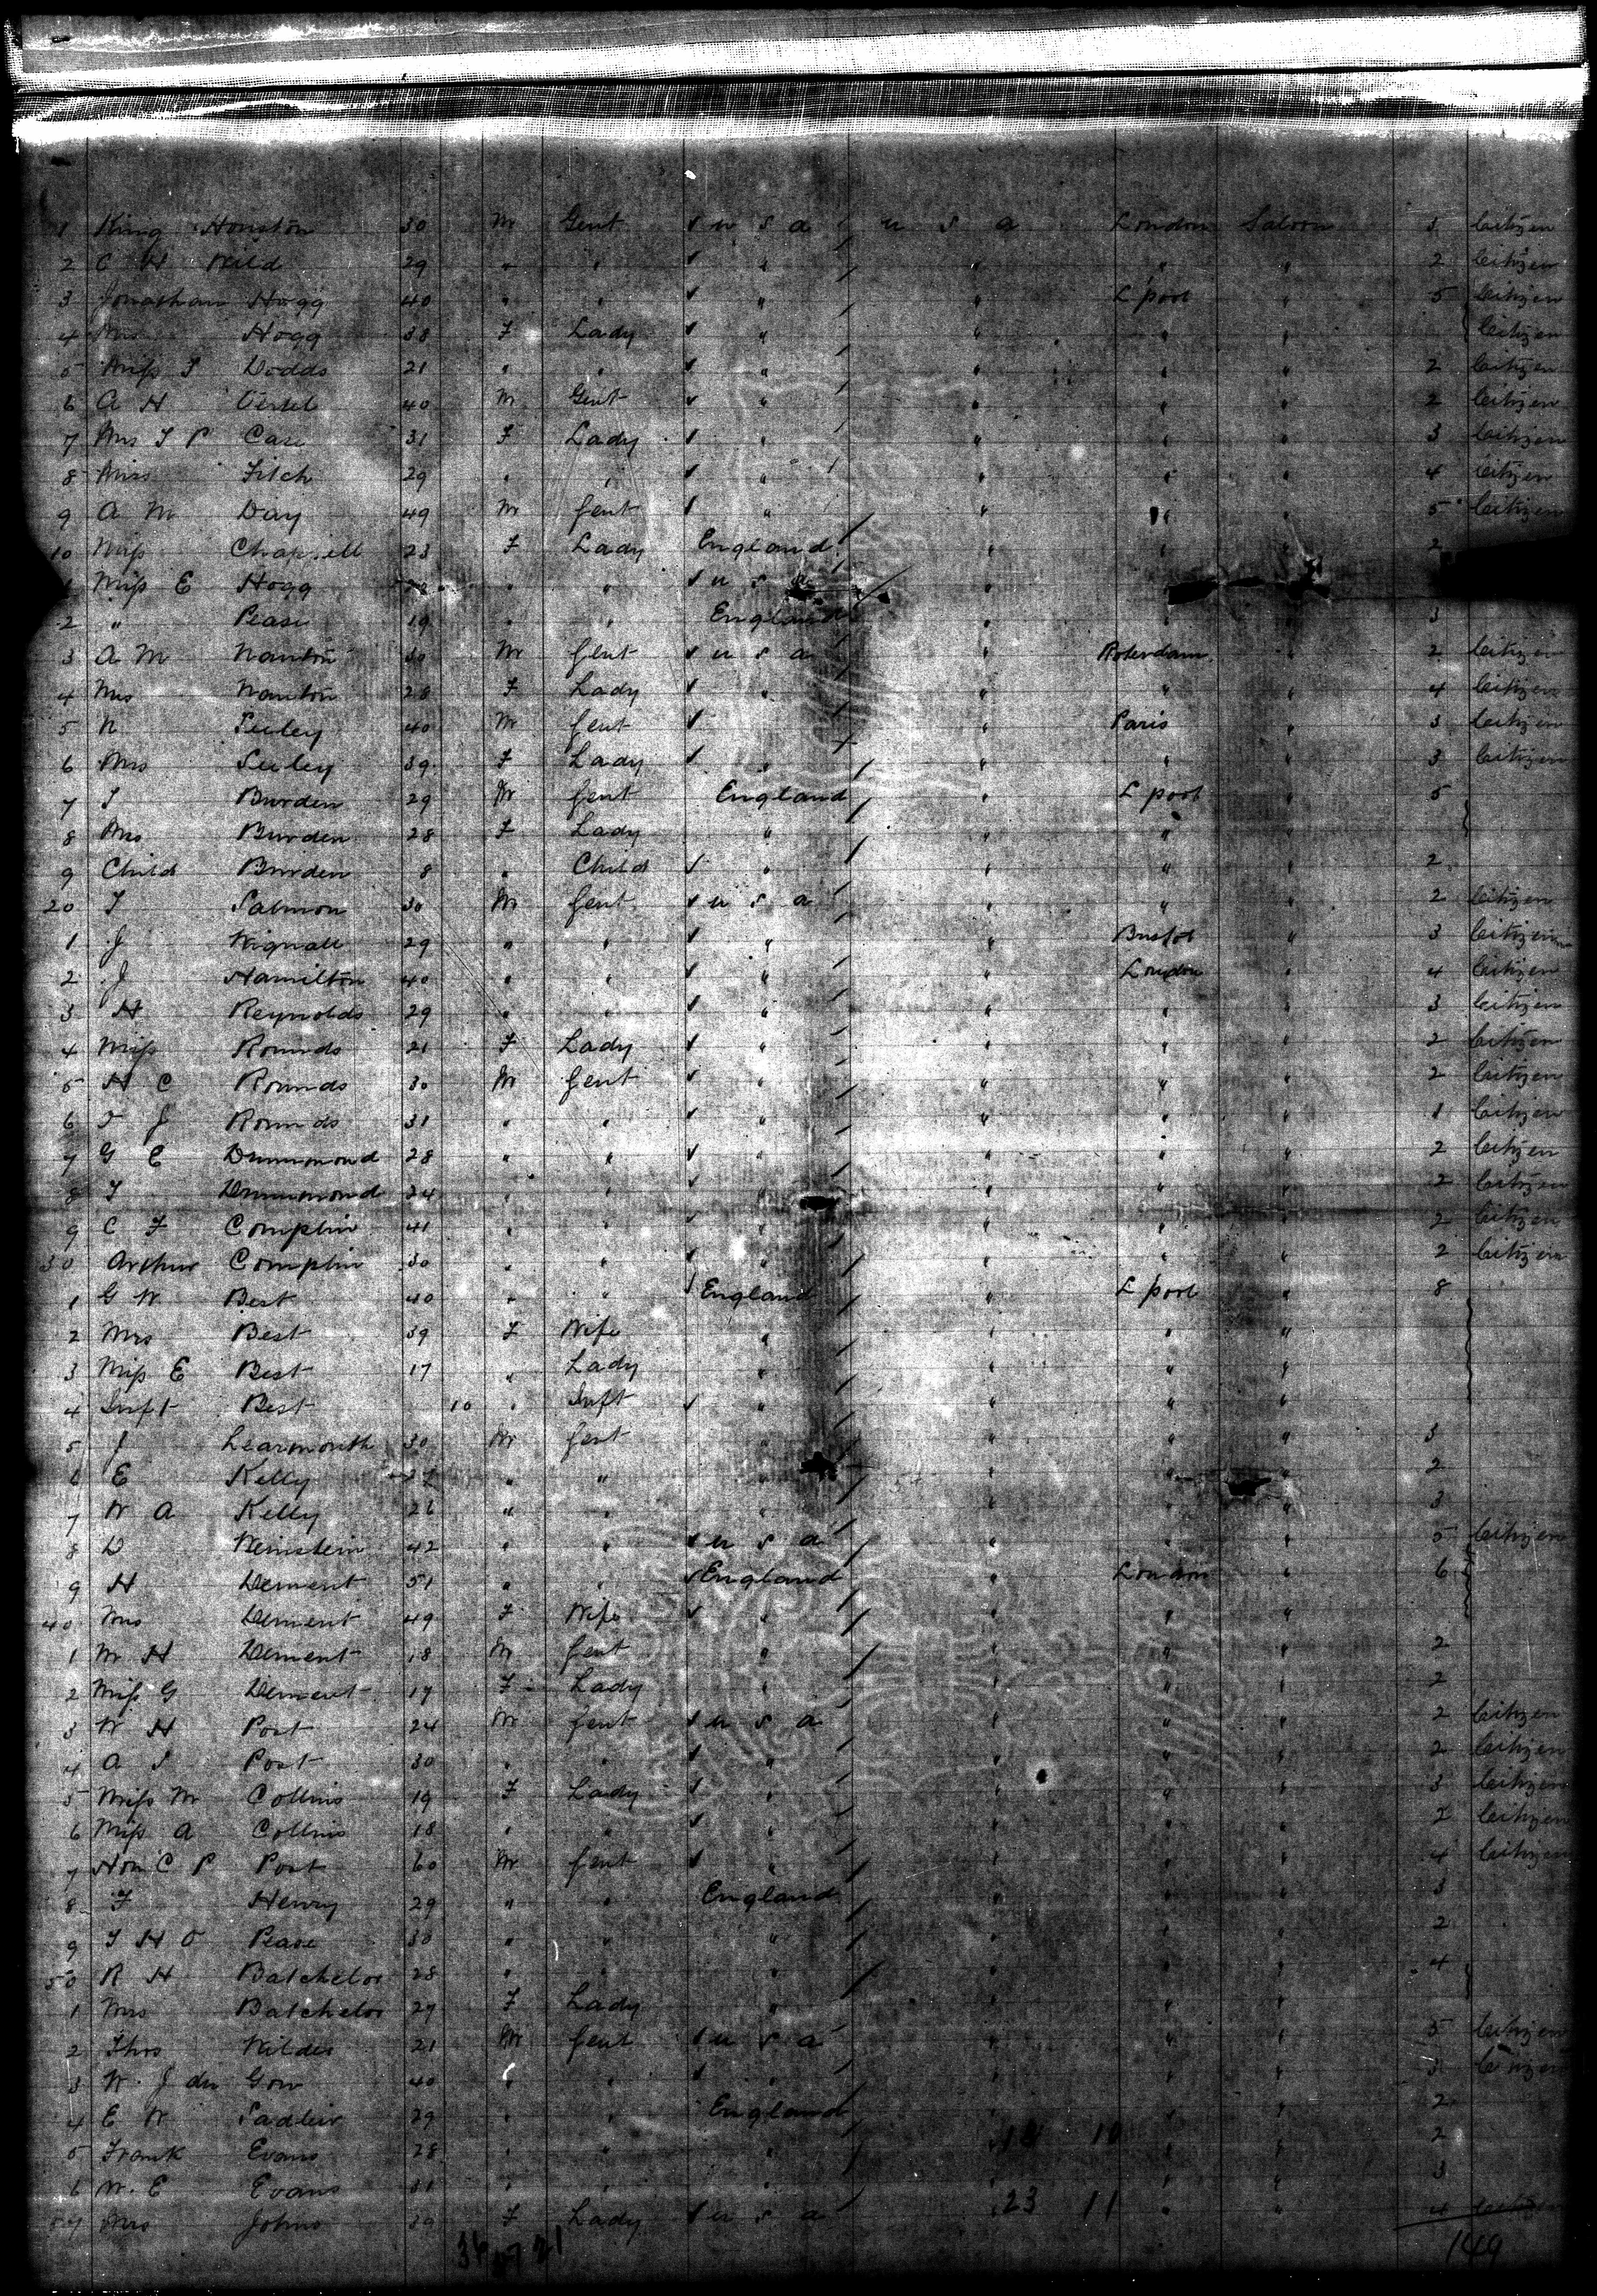 1 King Houston 30 M Gent ✓ u s a / u s a London Saloon 3 Citizen
2 C H Wild 29 " " ✓ " / " " " 2 Citizen
3 Jonathan Hogg 40 " " ✓ " / " L'pool " 5 Citizen
4 Mrs Hogg 38 F Lady ✓ " / " " " Citizen
5 Miss Dodds 21 " " ✓ " / " " " 2 Citizen
6 A H 40 M Gent ✓ " / " " " 2 Citizen
7 Mrs J P Case 31 F Lady ✓ " / " " " 3 Citizen
8 Miss Fitch 29 " " ✓ " / " " " 4 Citizen
9 A M Day 49 M Gent ✓ " / " " " 5 Citizen
10 Miss Chappell 23 F Lady England / " " " 2
1 Miss E Hogg " " ✓ u s a / "
2 " Pease 19 " " England " " " 3
3 A M Nanton 30 M Gent ✓ u s a / " Roterdam " 2 Citizen
4 Mrs Nanton 28 F Lady ✓ " / " " " 4 Citizen
5 N Seeley 40 M Gent ✓ / " Paris " 3 Citizen
6 Mrs Seeley 39 F Lady ✓ " / " " " 3 Citizen
7 T Burden 29 M Gent England / " L'pool " 5
8 Mrs Burden 28 F Lady " / " " "
9 Child Burden 8 " Child ✓ " / " " " 2
20 T Salmon 30 M Gent ✓ u s a / " " " 2 Citizen
1 J Wignall 29 " " ✓ " / " Bristol " 3 Citizen
2 J Hamilton 40 " " ✓ " / " London " 4 Citizen
3 H Reynolds 29 " " ✓ " / " " " 3 Citizen
4 Miss Rounds 21 F Lady ✓ " / " " " 2 Citizen
5 H C Rounds 30 M Gent ✓ " / " " " 2 Citizen
6 J Rounds 31 " " ✓ " / " " " 1 Citizen
7 G E Drummond 28 " " ✓ " / " " " 2 Citizen
8 T Drummond 24 " " ✓ " / " " " 2 Citizen
9 C F Complin 41 " " ✓ " / " " " 2 Citizen
30 Arthur Complin 30 " " ✓ " / " " " 2 Citizen
1 G W Best 40 " " ✓ England / " L'pool " 8
2 Mrs Best 39 F Wife " / " " "
3 Miss E Best 17 " Lady " / " " "
4 Inft Best 10 " Inft ✓ " / " " "
5 J Learmonth 30 M Gent " / " " " 3
6 E Kelly " " " / " " " 2
7 W A Kelly 26 " " " / " " " 3
8 D Weinstein 42 " " ✓ u s a / " " " 5 Citizen
9 H Dement 51 " " ✓ England / " London " 6
40 Mrs Dement 49 F Wife ✓ " / " " "
1 M H Dement 18 M Gent " / " " " 2
2 Miss G Dement 17 F Lady " / " " " 2
3 W H Post 24 M Gent ✓ u s a / " " " 2 Citizen
4 A S Post 30 " " ✓ " / " " " 2 Citizen
5 Miss M Collins 19 F Lady ✓ " / " " " 3 Citizen
6 Miss A Collins 18 " " ✓ " / " " " 2 Citizen
7 Hon C P Post 60 M Gent ✓ " / " " " 4 Citizen
8 F Henry 29 " " England / " " " 3
9 T H O Pease 30 " " " / " " " 2
50 R H Batchelor 28 " " " / " " " 4
1 Mrs Batchelor 27 F Lady " / " " "
2 Thos Wildes 21 M Gent ✓ u s a / " " " 5 Citizen
3 W J du Gow 40 " " ✓ " / " " " 3 Citizen
4 E W Sadleir 29 " " England / " " " 2
5 Frank Evans 28 " " " / 18 10 " " 2
6 W. E Evans 31 " " " / " " " 3
57 Mrs Johns 39 F Lady ✓ u s a / 23 11 " " 4 Citizen
36 21 149